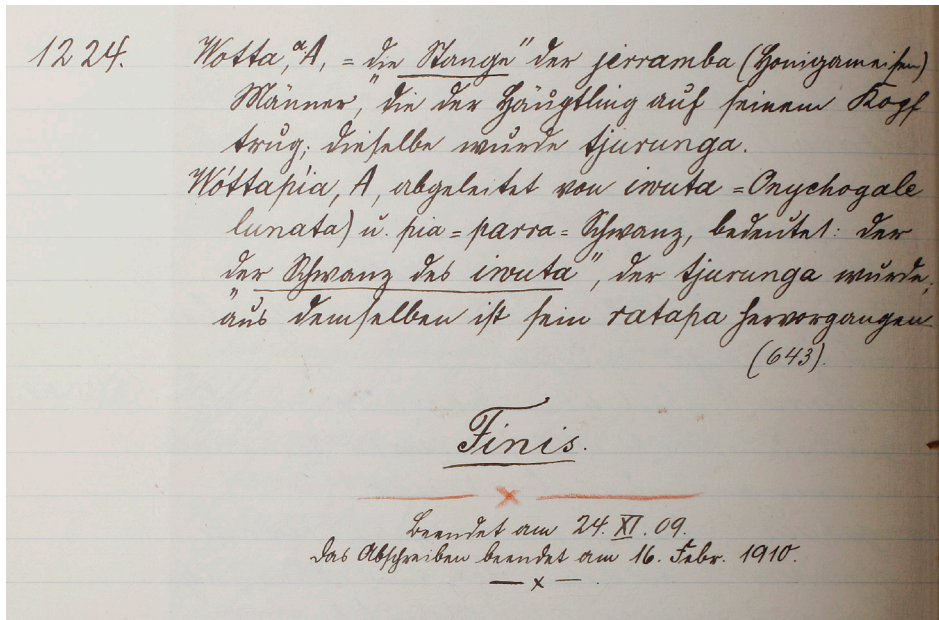 1224. Wotta, a. A, = „die Stange" der jerramba (Honigameisen)
Männer, die der Häuptling auf seinem Kopf
trug; dieselbe wurde tjurunga.
Wóttapia, A, abgeleitet von iwuta = Onychogale
lunata) u. pia = parra = Schwanz, bedeutet: der
„der Schwanz des iwuta", der tjurunga wurde,
aus demselben ist sein ratapa hervorgangen
(643).
Finis.
Beendet am 24. XI. 09.
Das Abschreiben beendet am 16. Febr. 1910.